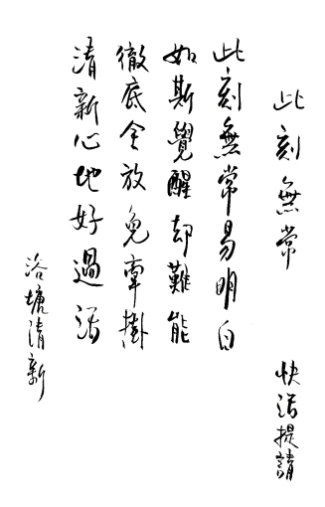 此刻無常
快活提請
此刻無常易明白
如斯覺醒却難能
徹底全放免牽掛
清新心地好過活
洛塘清新